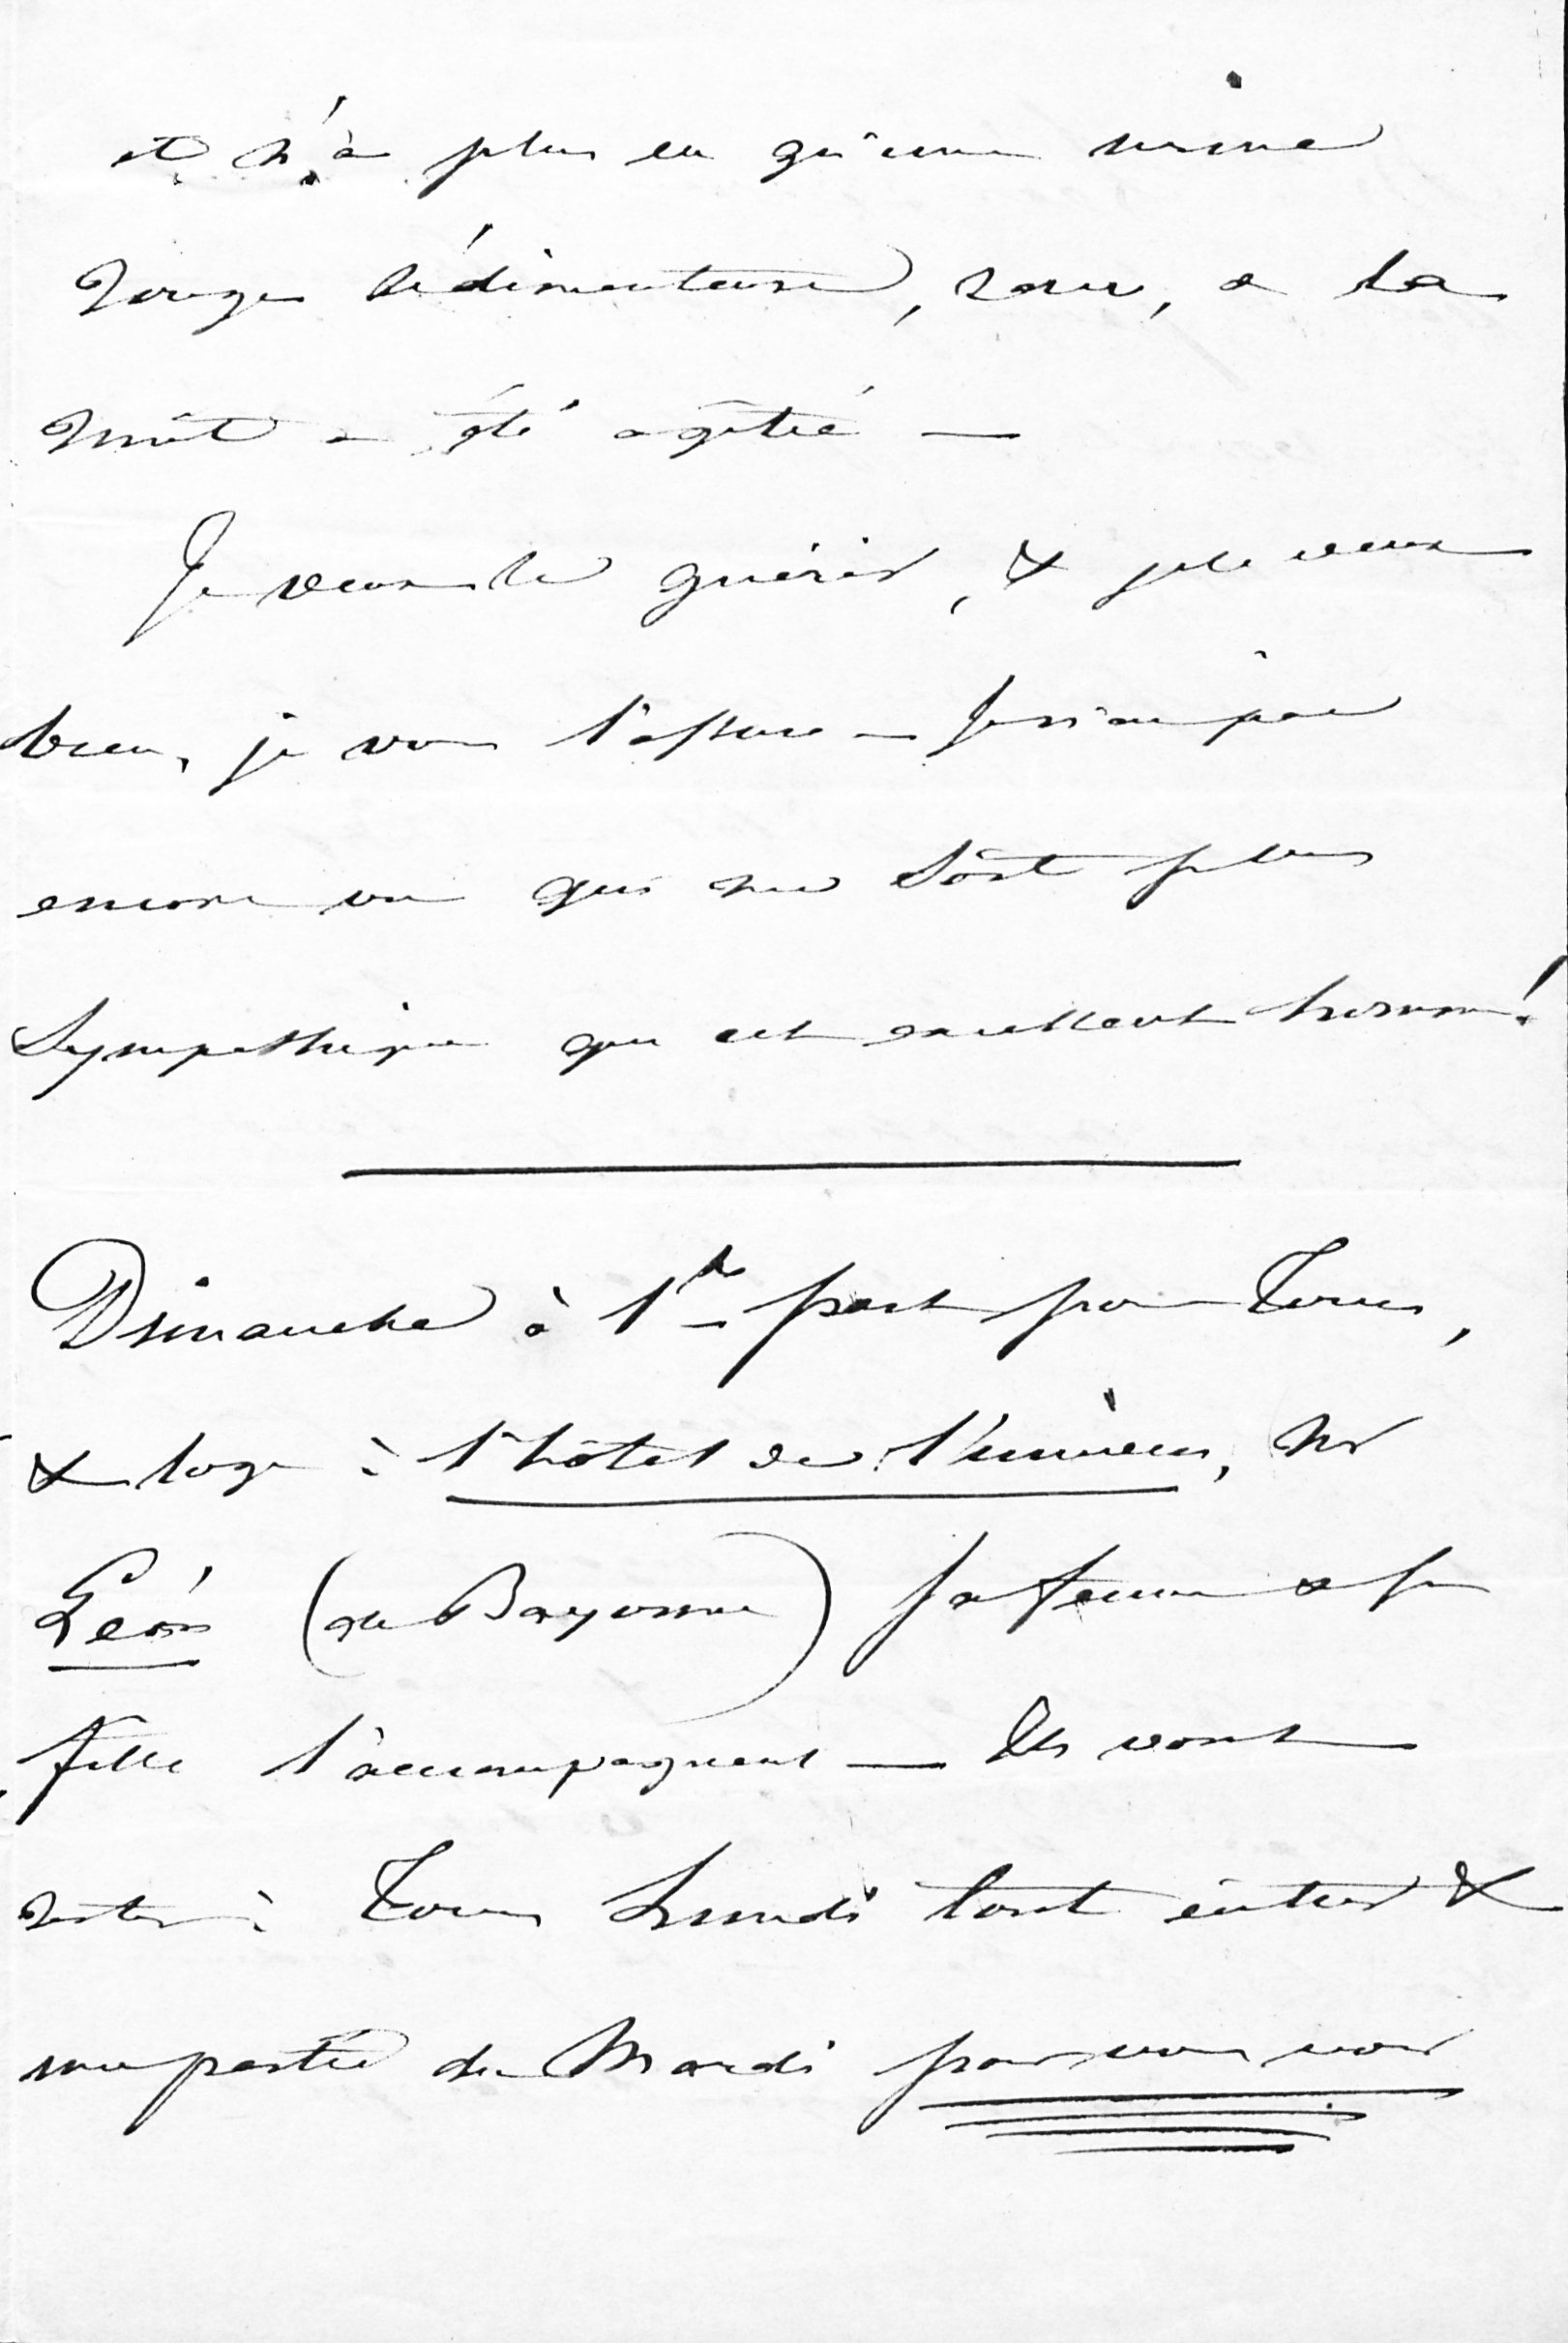 et n'a plus eu qu'une urine
rouge sédimenteuse, rare, & la
nuit a été agitée —
Je veux le guérir, & je le veux
bien, je vous l'assure — Je n'ai pas
encore vu qui me soit plus
sympathique que cet excellent homme!
Dimanche à 1h part pour Tours,
& loge à l'hôtel de l'univers, Mr
Léon (de Bayonne) sa femme & sa
fille l'accompagnent — Ils vont
rester à Tours Lundi tout entier &
une partie du Mardi pour vous voir